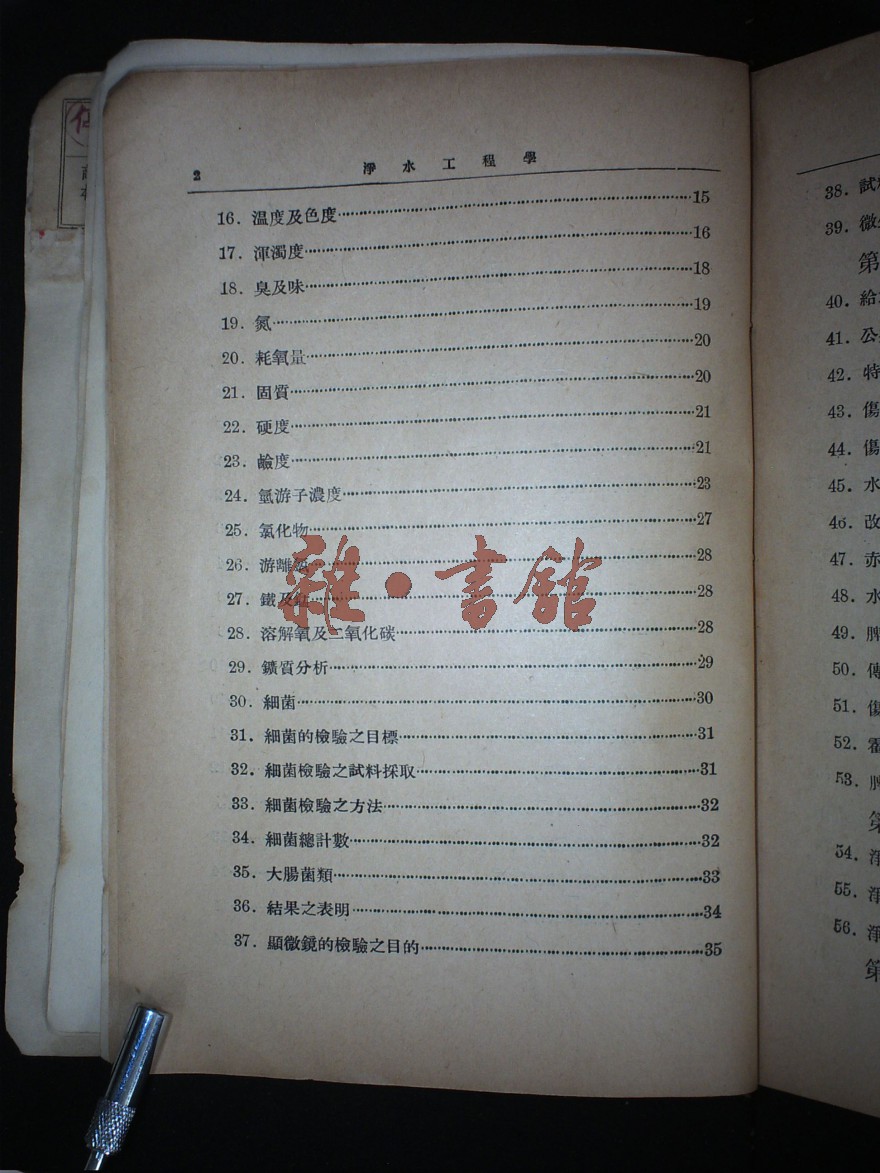 2 淨水工程學
16. 温度及色度 15
17. 渾濁度 16
18. 臭及味 18
19. 氮 19
20. 耗氧量 20
21. 固質 20
22. 硬度 21
23. 鹼度 21
24. 氫游子濃度 23
25. 氯化物 27
26. 游離 28
27. 鐵及錳 28
28. 溶解氧及二氧化碳 28
29. 鑛質分析 29
30. 細菌 30
31. 細菌的檢驗之目標 31
32. 細菌檢驗之試料採取 31
33. 細菌檢驗之方法 32
34. 細菌總計數 32
35. 大腸菌類 33
36. 結果之表明 34
37. 顯微鏡的檢驗之目的 35
雜·書館
38. 試
39. 微
第
40. 給
41. 公
42. 特
43. 傷
44. 傷
45. 水
46. 改
47. 赤
48. 水
49. 脾
50. 傳
51. 傷
52. 霍
53. 脾
第
54. 淨
55. 淨
56. 淨
第